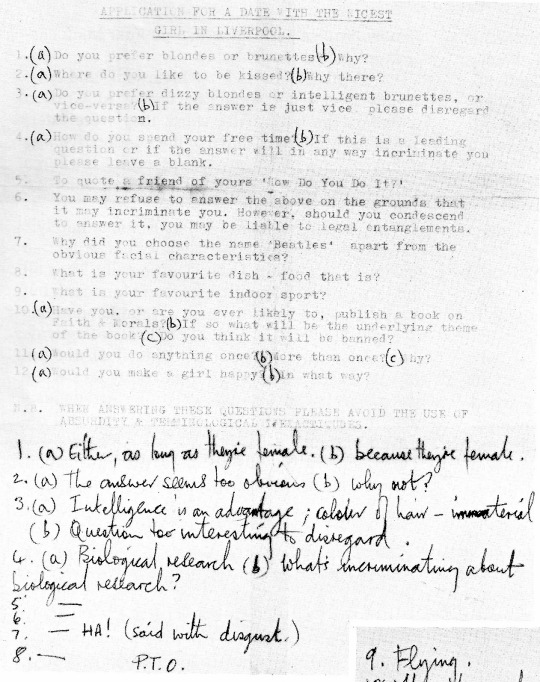 APPLICATION FOR A DATE WITH THE NICEST
GIRL IN LIVERPOOL.
1.(a) Do you prefer blondes or brunettes (b) Why?
2.(a) Where do you like to be kissed? (b) Why there?
3.(a) Do you prefer dizzy blondes or intelligent brunettes, or
vice-versa? (b) If the answer is just vice please disregard
the question.
4.(a) How do you spend your free time? (b) If this is a leading
question or if the answer will in any way incriminate you
please leave a blank.
5. To quote a friend of yours 'How Do You Do It?'
6. You may refuse to answer the above on the grounds that
it may incriminate you. However, should you condescend
to answer it, you may be liable to legal entanglements.
7. Why did you choose the name 'Beatles' apart from the
obvious facial characteristics?
8. What is your favourite dish - food that is?
9. What is your favourite indoor sport?
10.(a) Have you, or are you ever likely to, publish a book on
Faith & Morals? (b) If so what will be the underlying theme
of the book? (c) Do you think it will be banned?
11.(a) Would you do anything once? (b) More than once? (c) Why?
12.(a) Would you make a girl happy? (b) In what way?
N.B. WHEN ANSWERING THESE QUESTIONS PLEASE AVOID THE USE OF
ABSURDITY & TERMINOLOGICAL INEXACTITUDES.
1. (a) Either, as long as they're female. (b) because they're female.
2. (a) The answer seems too obvious (b) why not?
3. (a) Intelligence is an advantage; colour of hair - immaterial
(b) Question too interesting to disregard.
4. (a) Biological research (b) what's incriminating about
biological research?
5. —
6. —
7. — HA! (said with disgust.)
8. — P.T.O.
9. Flying.